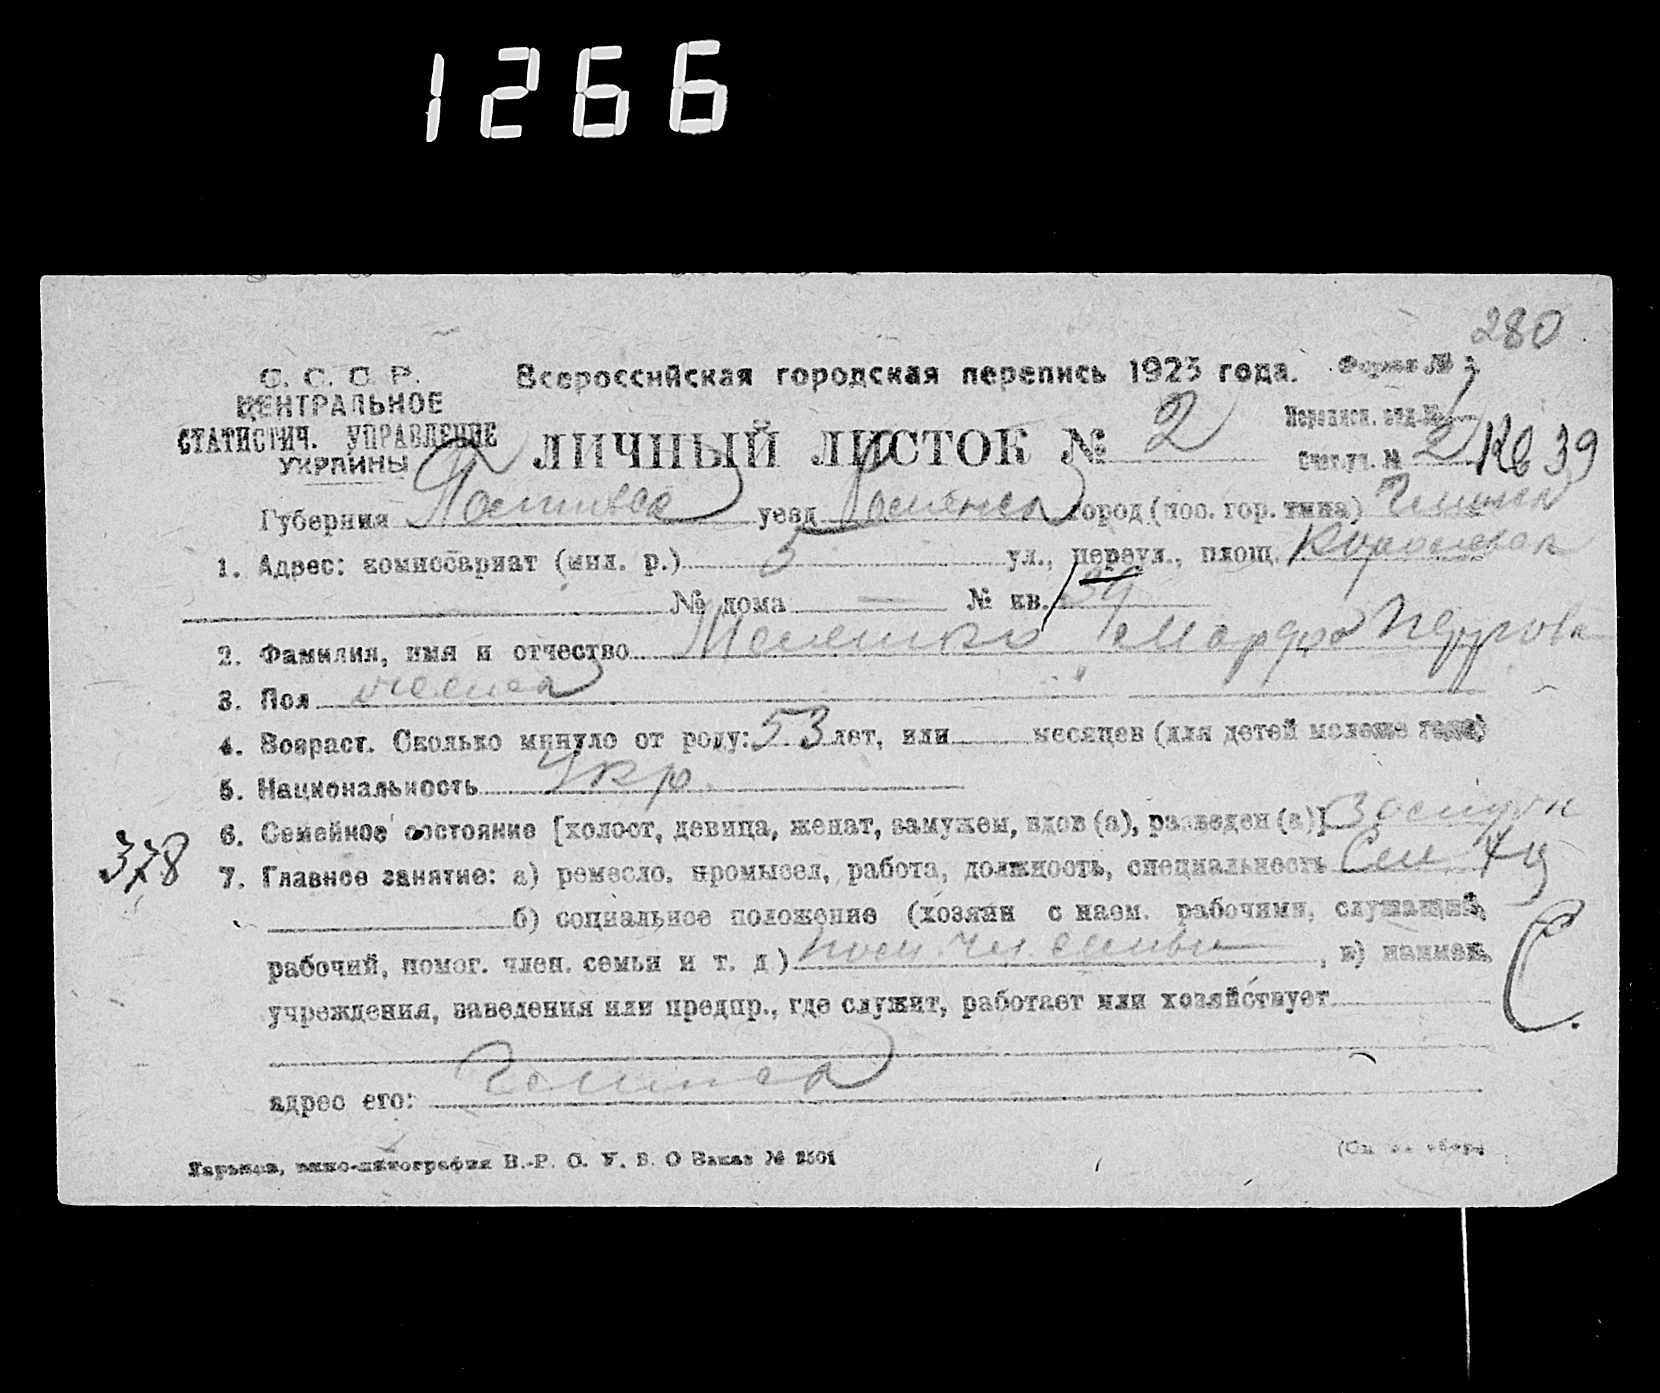 1266
280
С. С. С. Р. Всероссийская городская перепись 1923 года. Форма №
ЦЕНТРАЛЬНОЕ
СТАТИСТИЧ. УПРАВЛЕНИЕ
УКРАИНЫ
ЛИЧНЫЙ ЛИСТОК № 2
Переписн. отд. №
Счет. уч. № 2 Кв 39
Губерния уезд город (пос. гор. типа)
1. Адрес: комиссариат (мил. р.) 5 ул., переул., площ.
№ дома — № кв. 39
2. Фамилия, имя и отчество Марфа
3. Пол
4. Возраст. Сколько минуло от роду: 53 лет, или месяцев (для детей моложе года)
5. Национальность Укр.
378
6. Семейное состояние [холост, девица, женат, замужем, вдов (а), разведен (а)]
7. Главное занятие: а) ремесло, промысел, работа, должность, специальность
б) социальное положение (хозяин с наем. рабочими, служащий,
рабочий, помог. член. семьи и т. д) пом. чл. семьи , в) наимен.
учреждения, заведения или предпр., где служит, работает или хозяйствует
С.
адрес его:
Харьков, В.-Р. С. У. В. О Заказ № 2501